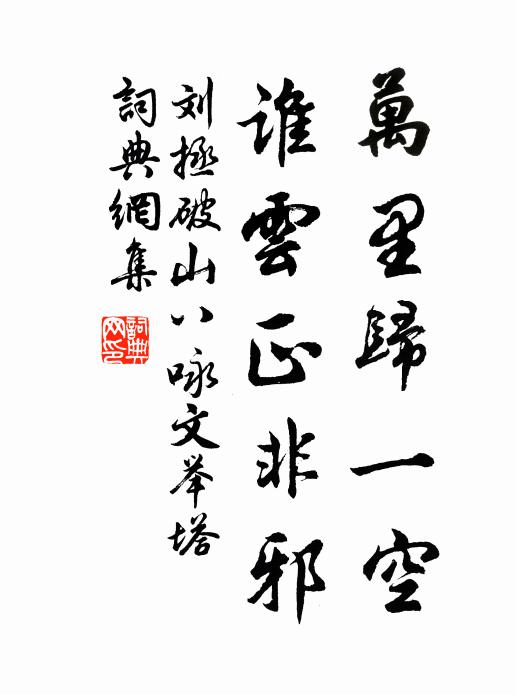 萬里歸一空
誰雲正非邪
刘拯破山八咏文举塔
詞典網集
詞典
网印